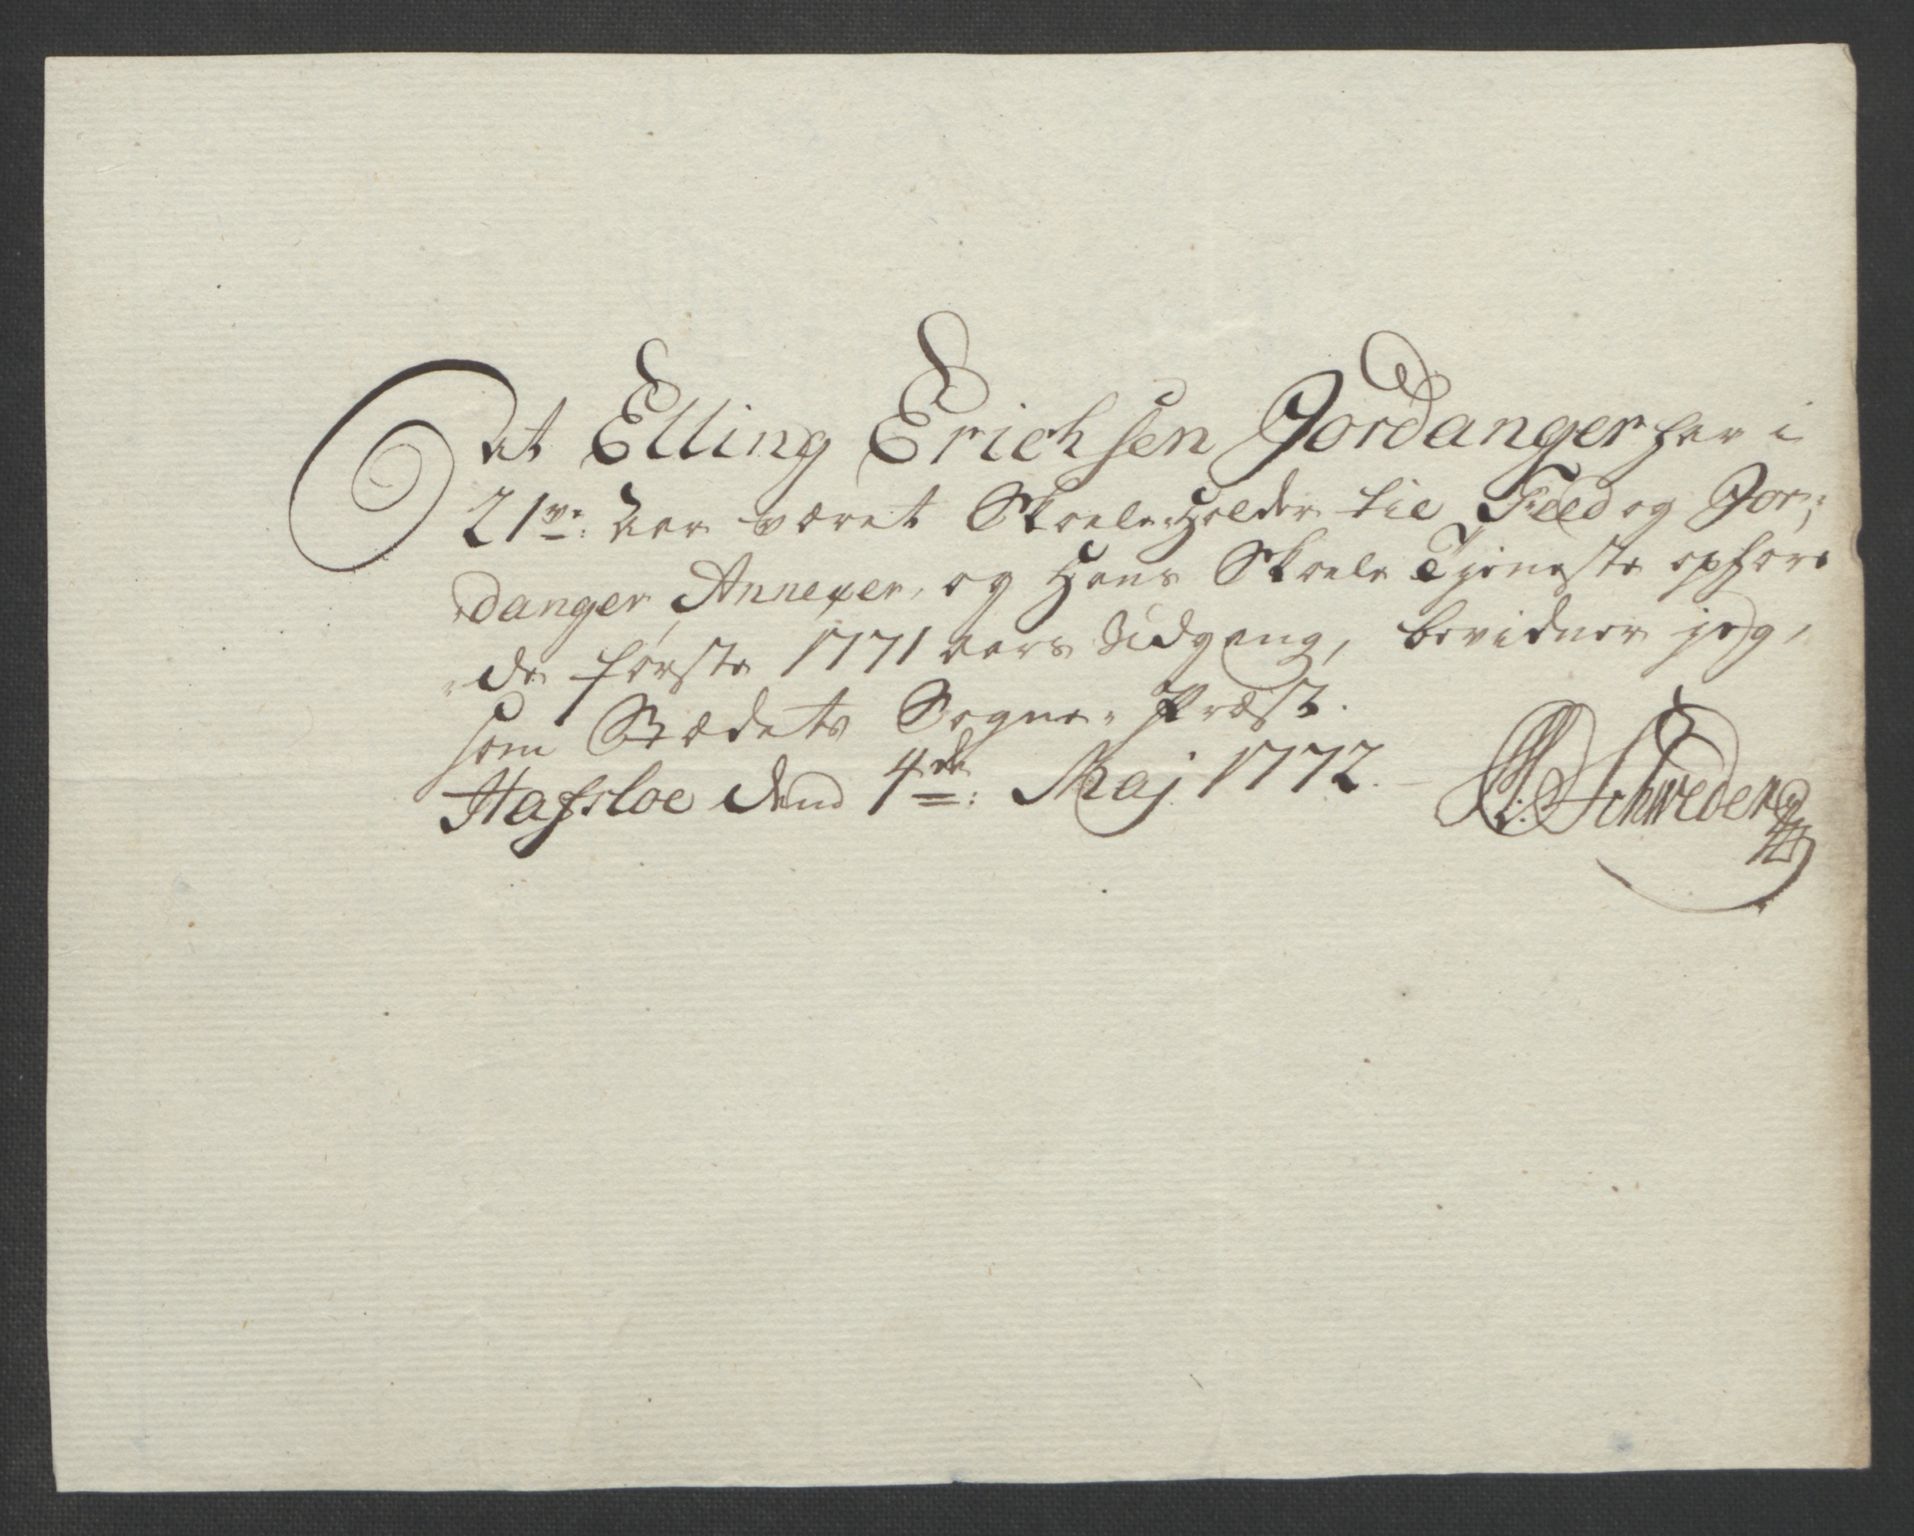 At Elling Erichsen Jordanger har i
21ve: Aar været Skoele-Holder til Fæd og Jor-
danger Annexer, og Hans Skoele Tjeneste ophør-
de første 1771 aars Udgang, bevidner jeg,
som Stædets Sogne-Præst.
Hafsloe dend 4de: Maj 1772. Schweder